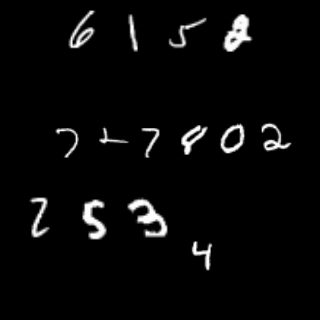 6 1 5 8
7 + 7 8 0 2
2 5 3
4